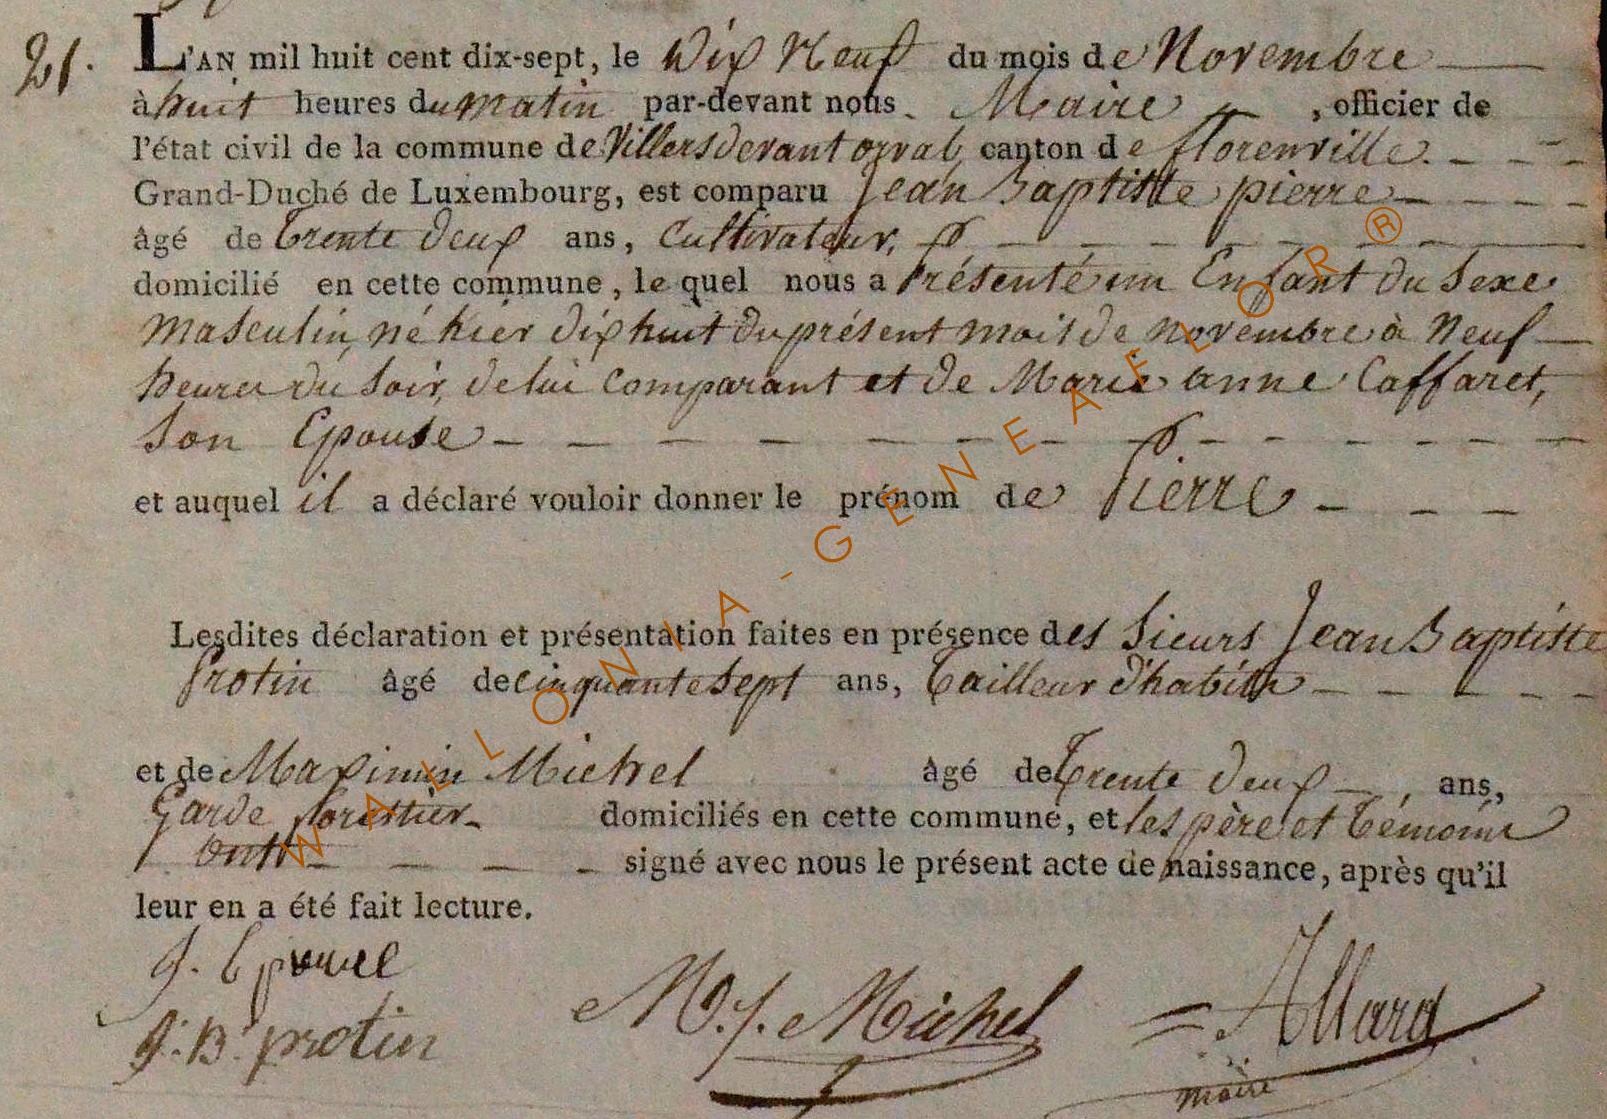 21.
L'AN mil huit cent dix-sept, le Dix Neuf du mois de Novembre
à huit heures du matin par-devant nous Maire, officier de
l'état civil de la commune de Villers devant orval, canton de florenville
Grand-Duché de Luxembourg, est comparu Jean Baptiste pierre
âgé de trente deux ans, Cultivateur,
domicilié en cette commune, le quel nous a Présenté un Enfant du Sexe
Masculin, né hier dix huit du présent mois de novembre à Neuf
heures du Soir, de lui Comparant et de Marie anne Caffaret,
Son Epouse
et auquel il a déclaré vouloir donner le prénom de Pierre
Lesdites déclaration et présentation faites en présence des Sieurs Jean Baptiste
Protin âgé de cinquante sept ans, Tailleur d'habits
et de Maximin Michel âgé de Trente deux ans,
Garde forestier domiciliés en cette commune, et les père et témoins
ont signé avec nous le présent acte de naissance, après qu'il
leur en a été fait lecture.
J. B
J. B. protin
M. J. Michel
Allard
maire
WALLONIA-GENEAFLOR ®